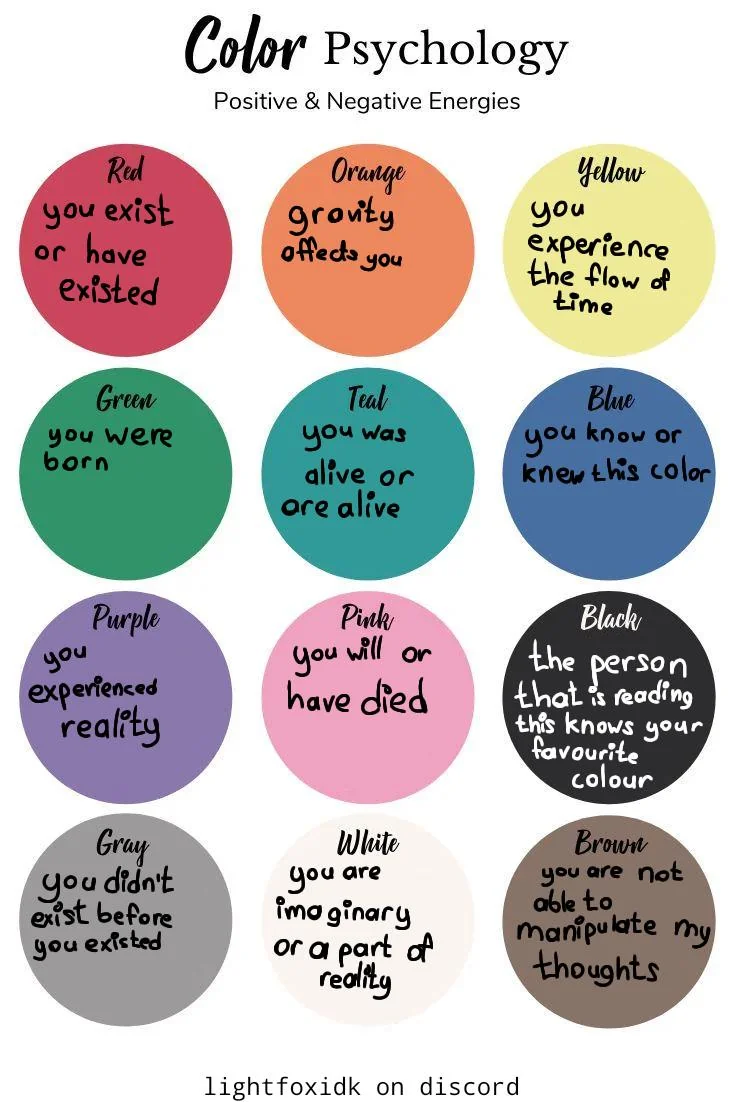 Color Psychology
Positive & Negative Energies
Red
you exist
or have
existed
Orange
gravity
affects you
Yellow
you
experience
the flow of
time
Green
you were
born
Teal
you was
alive or
are alive
Blue
you know or
knew this color
Purple
you
experienced
reality
Pink
you will or
have died
Black
the person
that is reading
this knows your
favourite
colour
Gray
you didn't
exist before
you existed
White
you are
imaginary
or a part of
reality
Brown
you are not
able to
manipulate my
thoughts
lightfoxidk on discord